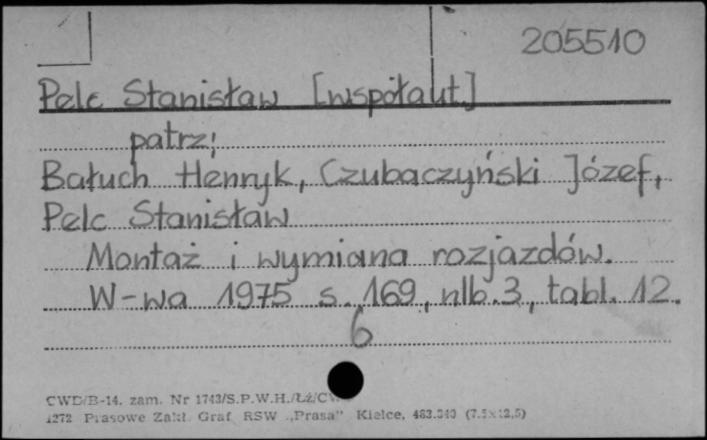 205510
Pelc Stanisław [współaut.]
patrz:
Bałuch Henryk, Czubaczyński Józef,
Pelc Stanisław
Montaż i wymiana rozjazdów.
W-wa 1975 s. 169, nlb. 3, tabl. 12.
6
CWD/B-14. zam. Nr 1743/S.P.W.H./Łź/CW
1272 Prasowe Zakł. Graf. RSW „Prasa" Kielce, 483.340 (7.5x12,5)